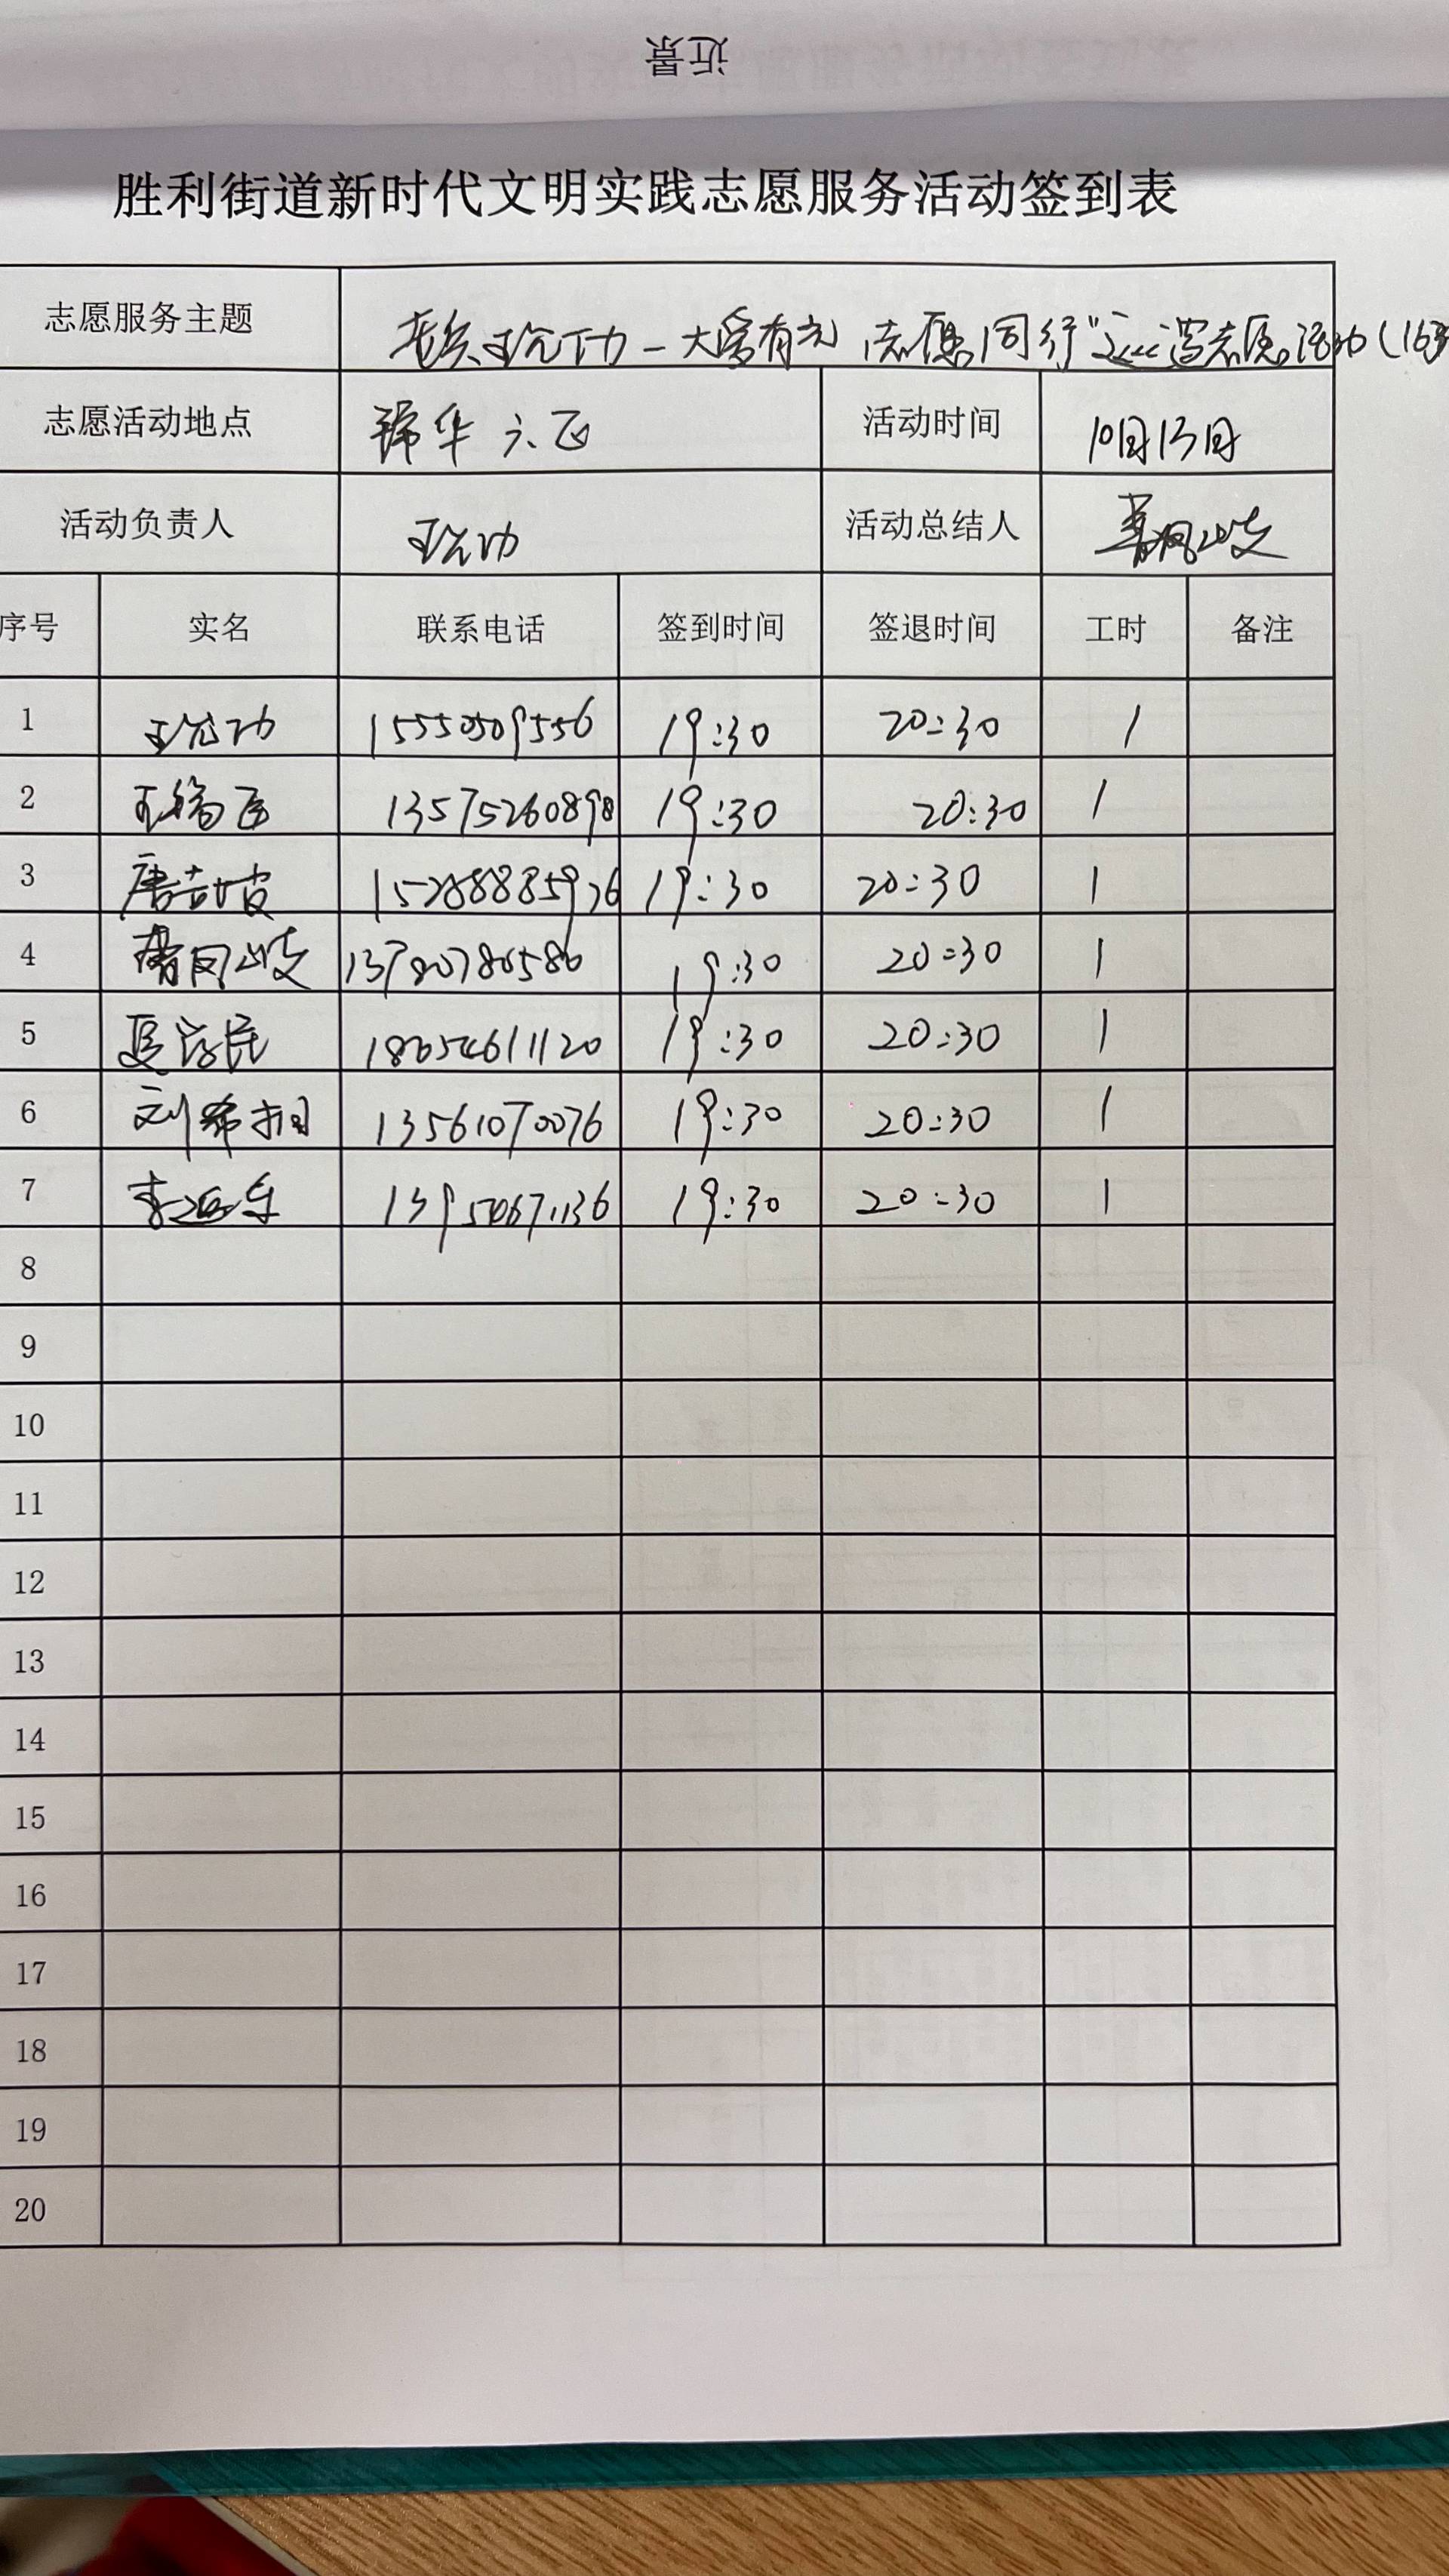 近景
胜利街道新时代文明实践志愿服务活动签到表
志愿服务主题 老兵 功一大爱有光 志愿同行" 志愿活动(16
志愿活动地点 锦华六 活动时间 10月13日
活动负责人 功 活动总结人 凤岐
序号 实名 联系电话 签到时间 签退时间 工时 备注
1 功 15550509556 19:30 20:30 1
2 王 13575260898 19:30 20:30 1
3 唐 19:30 20:30 1
4 凤岐 13780786586 19:30 20:30 1
5 民 19:30 20:30 1
6 刘希 13561070076 19:30 20:30 1
7 李 19:30 20:30 1
8
9
10
11
12
13
14
15
16
17
18
19
20